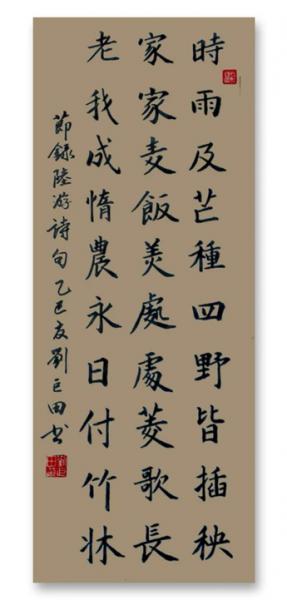 時雨及芒種四野皆插秧
家家麦飯美處處菱歌長
老我成惰農永日付竹牀
節錄陸游詩句乙巳友劉巨田书